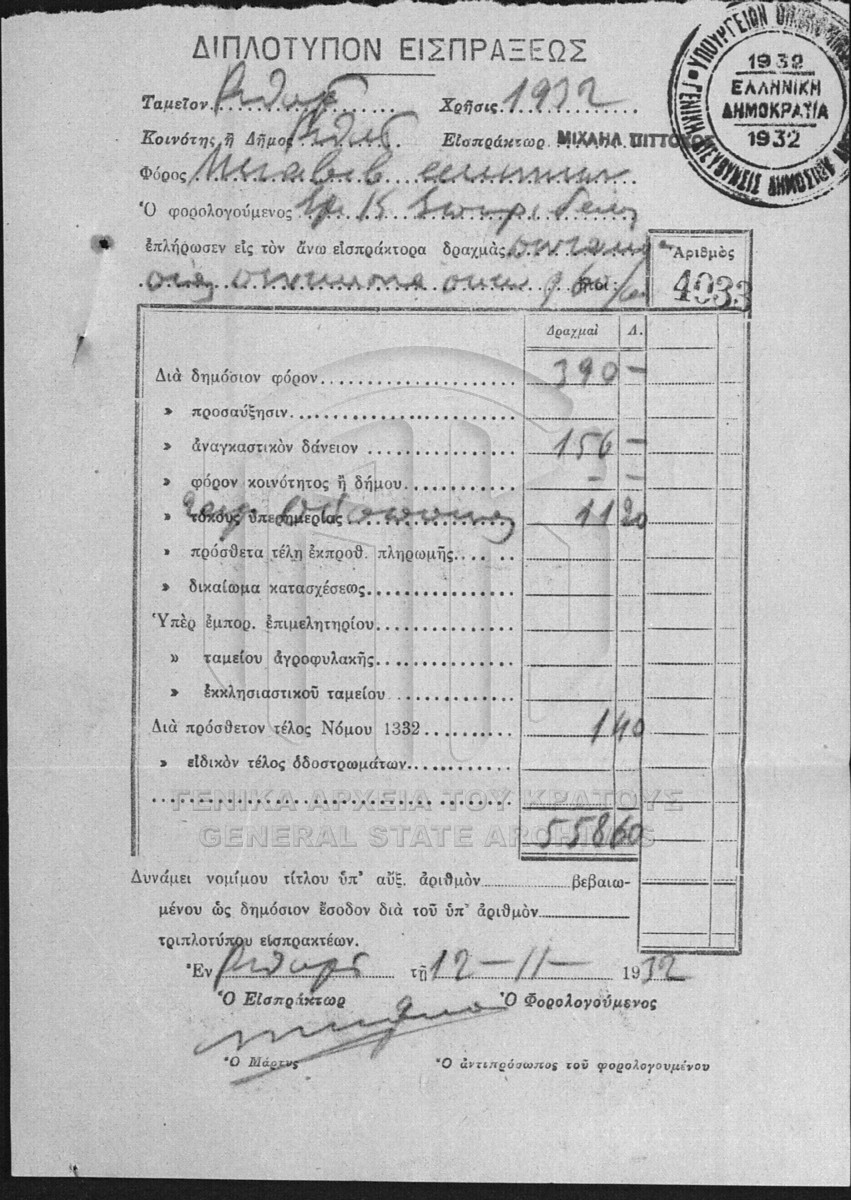 ΔΙΠΛΟΤΥΠΟΝ ΕΙΣΠΡΑΞΕΩΣ
1932
ΕΛΛΗΝΙΚΗ
ΔΗΜΟΚΡΑΤΙΑ
1932
Ταμεῖον Χρῆσις 1932
Κοινότης ἢ Δῆμος Εἰσπράκτωρ ΜΙΧΑΗΛ
Φόρος
Ὁ φορολογούμενος
ἐπλήρωσεν εἰς τὸν ἄνω εἰσπράκτορα δραχμὰς
Ἀριθμὸς
4033
Δραχμαὶ Λ.
Διὰ δημόσιον φόρον 390 –
» προσαύξησιν
» ἀναγκαστικὸν δάνειον 156 –
» φόρον κοινότητος ἢ δήμου – –
» τόκους ὑπερημερίας 11 20
» πρόσθετα τέλη ἐκπροθ. πληρωμῆς
» δικαίωμα κατασχέσεως
Ὑπὲρ ἐμπορ. ἐπιμελητηρίου
» ταμείου ἀγροφυλακῆς
» ἐκκλησιαστικοῦ ταμείου
Διὰ πρόσθετον τέλος Νόμου 1332 1 40
» εἰδικὸν τέλος ὁδοστρωμάτων
ΓΕΝΙΚΑ ΑΡΧΕΙΑ ΤΟΥ ΚΡΑΤΟΥΣ
GENERAL STATE ARCHIVES
558 60
Δυνάμει νομίμου τίτλου ὑπ' αὔξ. ἀριθμὸν βεβαιω-
μένου ὡς δημόσιον ἔσοδον διὰ τοῦ ὑπ' ἀριθμὸν
τριπλοτύπου εἰσπρακτέων.
Ἐν τῇ 12 – 11 – 1932
Ὁ Εἰσπράκτωρ Ὁ Φορολογούμενος
Ὁ Μάρτυς Ὁ ἀντιπρόσωπος τοῦ φορολογουμένου